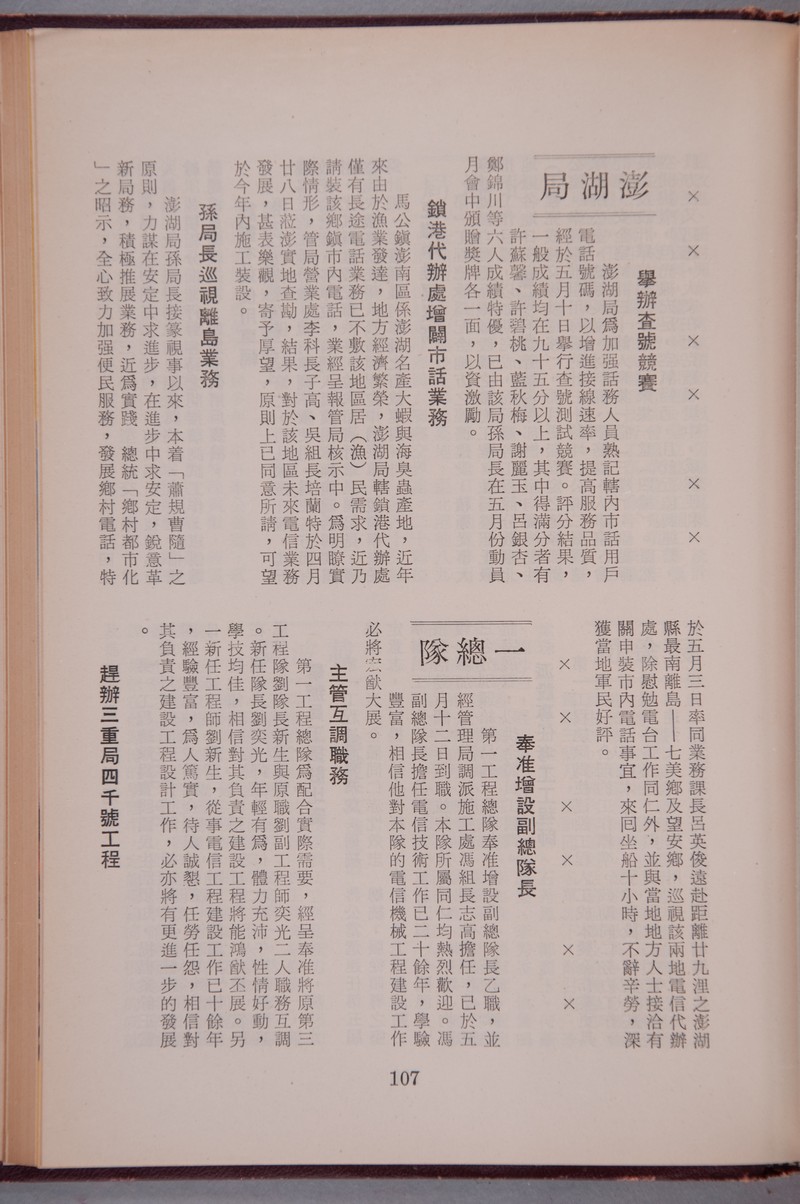 × × × × × ×
澎湖局
舉辦查號競賽
澎湖局爲加强話務人員熟記轄內市話用戶
電話號碼，以增進接線速率，提高服務品質，
經於五月十日舉行查號測試競賽。評分結果，
一般成績均在九十五分以上，其中得滿分者有
許蘇馨、許碧桃、藍秋梅、謝麗玉、呂銀杏、
鄭錦川等六人成績特優，已由該局孫局長在五月份動員
月會中頒贈獎牌各一面，以資激勵。
鎖港代辦處增闢市話業務
馬公鎭澎南區係澎湖名產大蝦與海臭蟲產地，近年
來由於漁業發達，地方經濟繁榮，澎湖局轄鎖港代辦處
僅有長途電話業務已不敷該地區居（漁）民需求，近乃
請裝該鄉鎭市內電話，業經呈報管局核示中。爲明瞭實
際情形，管局營業處李科長子高、吳組長培蘭特於四月
廿八日蒞澎實地查勘，結果，對於該地區未來電信業務
發展，甚表樂觀，寄予厚望，原則上已同意所請，可望
於今年內施工裝設。
孫局長巡視離島業務
澎湖局孫局長接篆視事以來，本着「蕭規曹隨」之
原則，力謀在安定中求進步，在進步中求安定，銳意革
新局務，積極推展業務，近爲實踐　總統「鄉村都市化
」之昭示，全心致力加强便民服務，發展鄉村電話，特
於五月三日率同業務課長呂英俊遠赴距離廿九浬之澎湖
縣最南離島──七美鄉及望安鄉，巡視該兩地電信代辦
處，除慰勉電台工作同仁外，並與當地地方人士接洽有
關申裝市內電話事宜，來囘坐船十小時，不辭辛勞，深
獲當地軍民好評。
× × × × × ×
一總隊
奉准增設副總隊長
第一工程總隊奉准增設副總隊長乙職，並
經管理局調派施工處馮組長志高擔任，已於五
月十二日到職。本隊所屬同仁均熱烈歡迎。馮
副總隊長擔任電信技術工作已二十餘年，學驗
豐富，相信他對本隊的電信機械工程建設工作
必將宏猷大展。
主管互調職務
第一工程總隊爲配合實際需要，經呈奉准將原第三
工程隊劉隊長新生與原職劉副工程師奕光二人職務互調
。新任隊長劉奕光，年輕有爲，體力充沛，性情好動，
學技均佳，相信對其負責之建設工程將能鴻猷丕展。另
一新任工程師劉新生，從事電信工程建設工作已十餘年
，經驗豐富，爲人篤實，待人誠懇，任勞任怨，相信對
其負責之建設工程設計工作，必亦將有更進一步的發展
。
趕辦三重局四千號工程
107